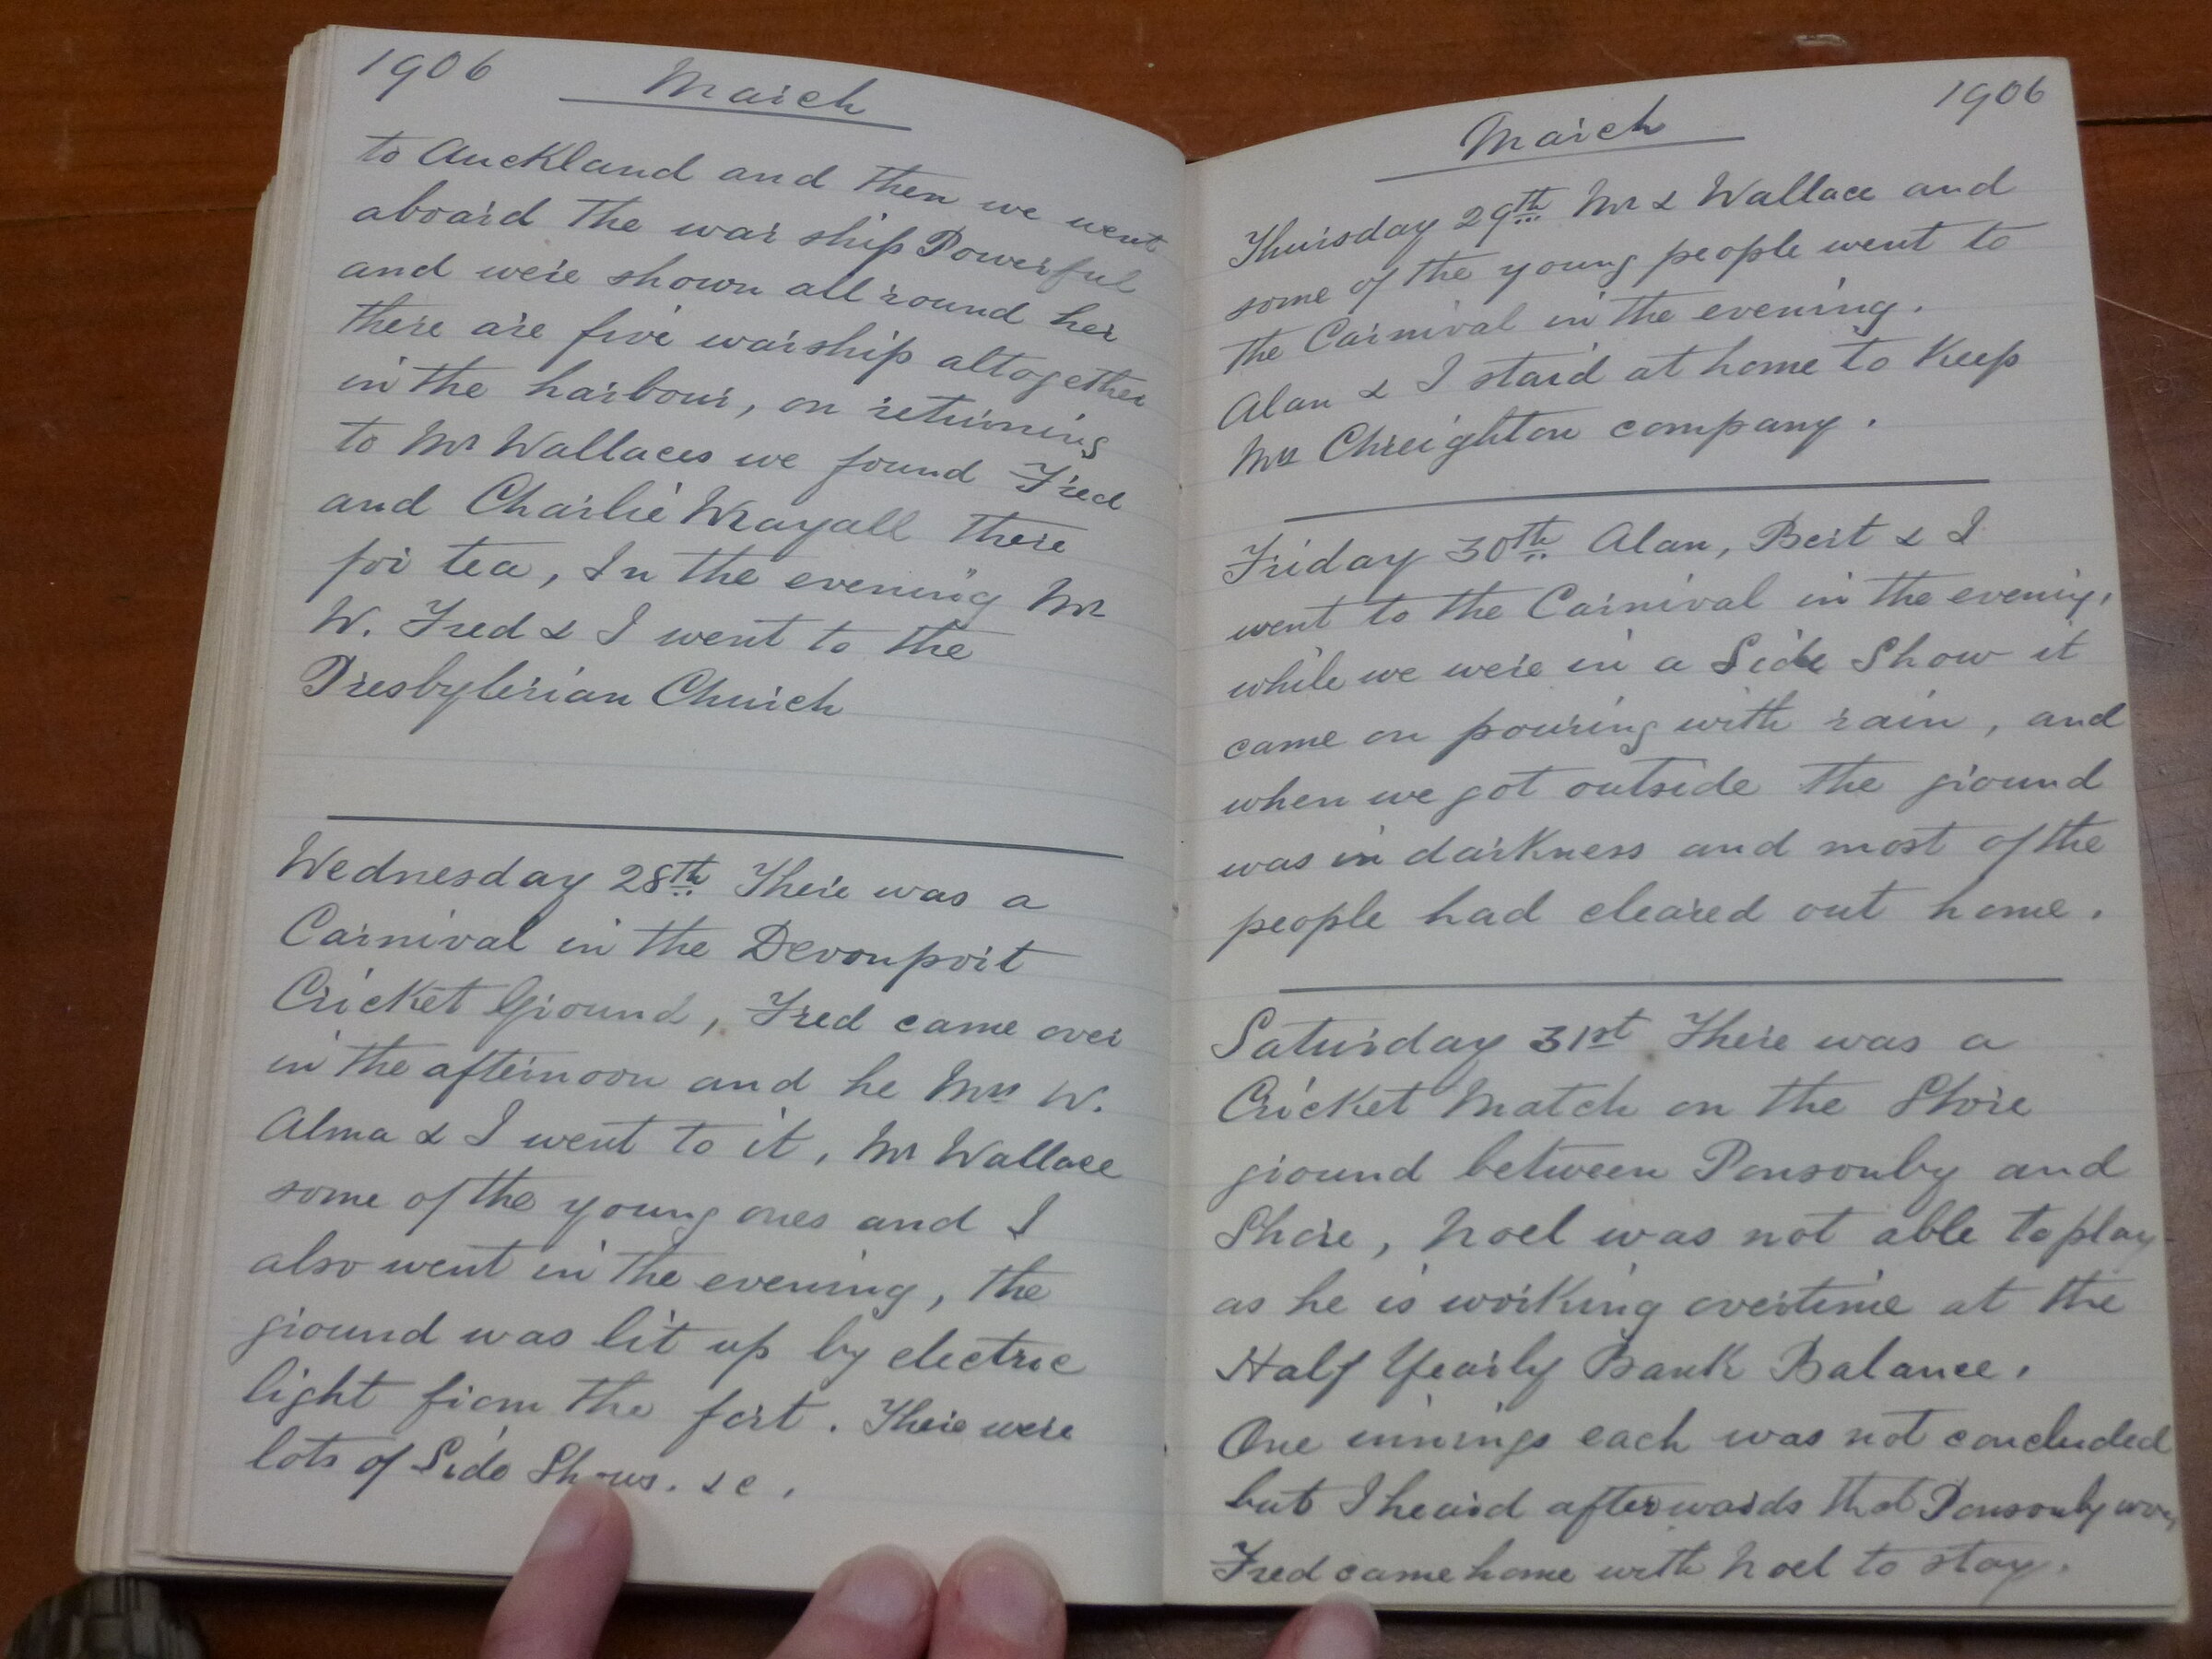 1906 March
to Auckland and then we went
aboard the war ship Powerful
and were shown all round her
there are five warship altogether
in the harbour, on returning
to Mr Wallaces we found Fred
and Charlie Mayall there
for tea, In the evening Mr
W. Fred & I went to the
Presbyterian Church
Wednesday 28th There was a
Carnival in the Devonport
Cricket Ground, Fred came over
in the afternoon and he Mrs W.
Alma & I went to it, Mr Wallace
some of the young ones and I
also went in the evening, the
ground was lit up by electric
light from the fort. There were
lots of Side Shows. &c.
March 1906
Thursday 29th Mr & Wallace and
some of the young people went to
the Carnival in the evening.
Alan & I staid at home to Keep
Mrs Chreighton company.
Friday 30th Alan, Bert & I
went to the Carnival in the evening,
while we were in a Side Show it
came on pouring with rain, and
when we got outside the ground
was in darkness and most of the
people had cleared out home.
Saturday 31st There was a
Cricket Match on the Shore
ground between Ponsonby and
Shore, Noel was not able to play
as he is working overtime at the
Half Yearly Bank Balance.
One innings each was not concluded
but I heard afterwards that Ponsonby won,
Fred came home with Noel to stay.